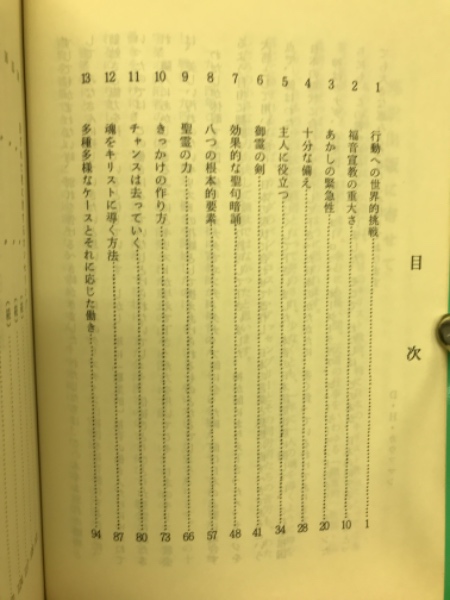 目次
1 行動への世界的挑戦 1
2 福音宣教の重大さ 10
3 あかしの緊急性 20
4 十分な備え 28
5 主人に役立つ 34
6 御霊の剣 41
7 効果的な聖句暗誦 48
8 八つの根本的要素 57
9 聖霊の力 66
10 きっかけの作り方 73
11 チャンスは去っていく 80
12 魂をキリストに導く方法 87
13 多種多様なケースとそれに応じた働き 94